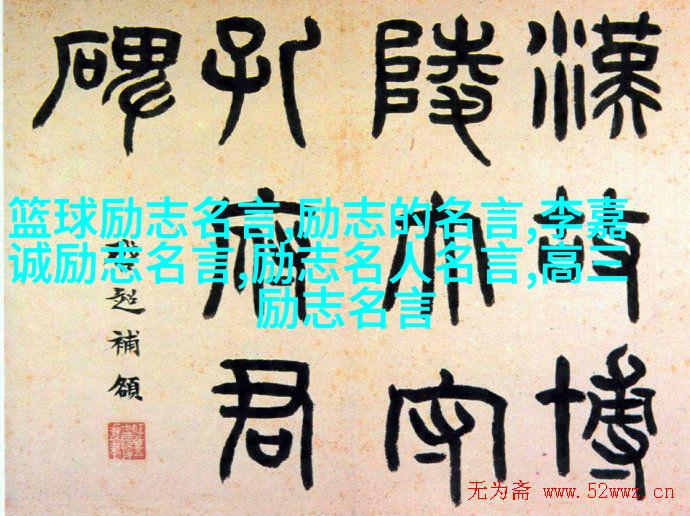 漢故博
陵太守
孔府君
碑
超補額
篮球励志名言,励志的名言,李嘉
诚励志名言,励志名人名言,高三
励志名言
无为斋 www.52wwz.cn